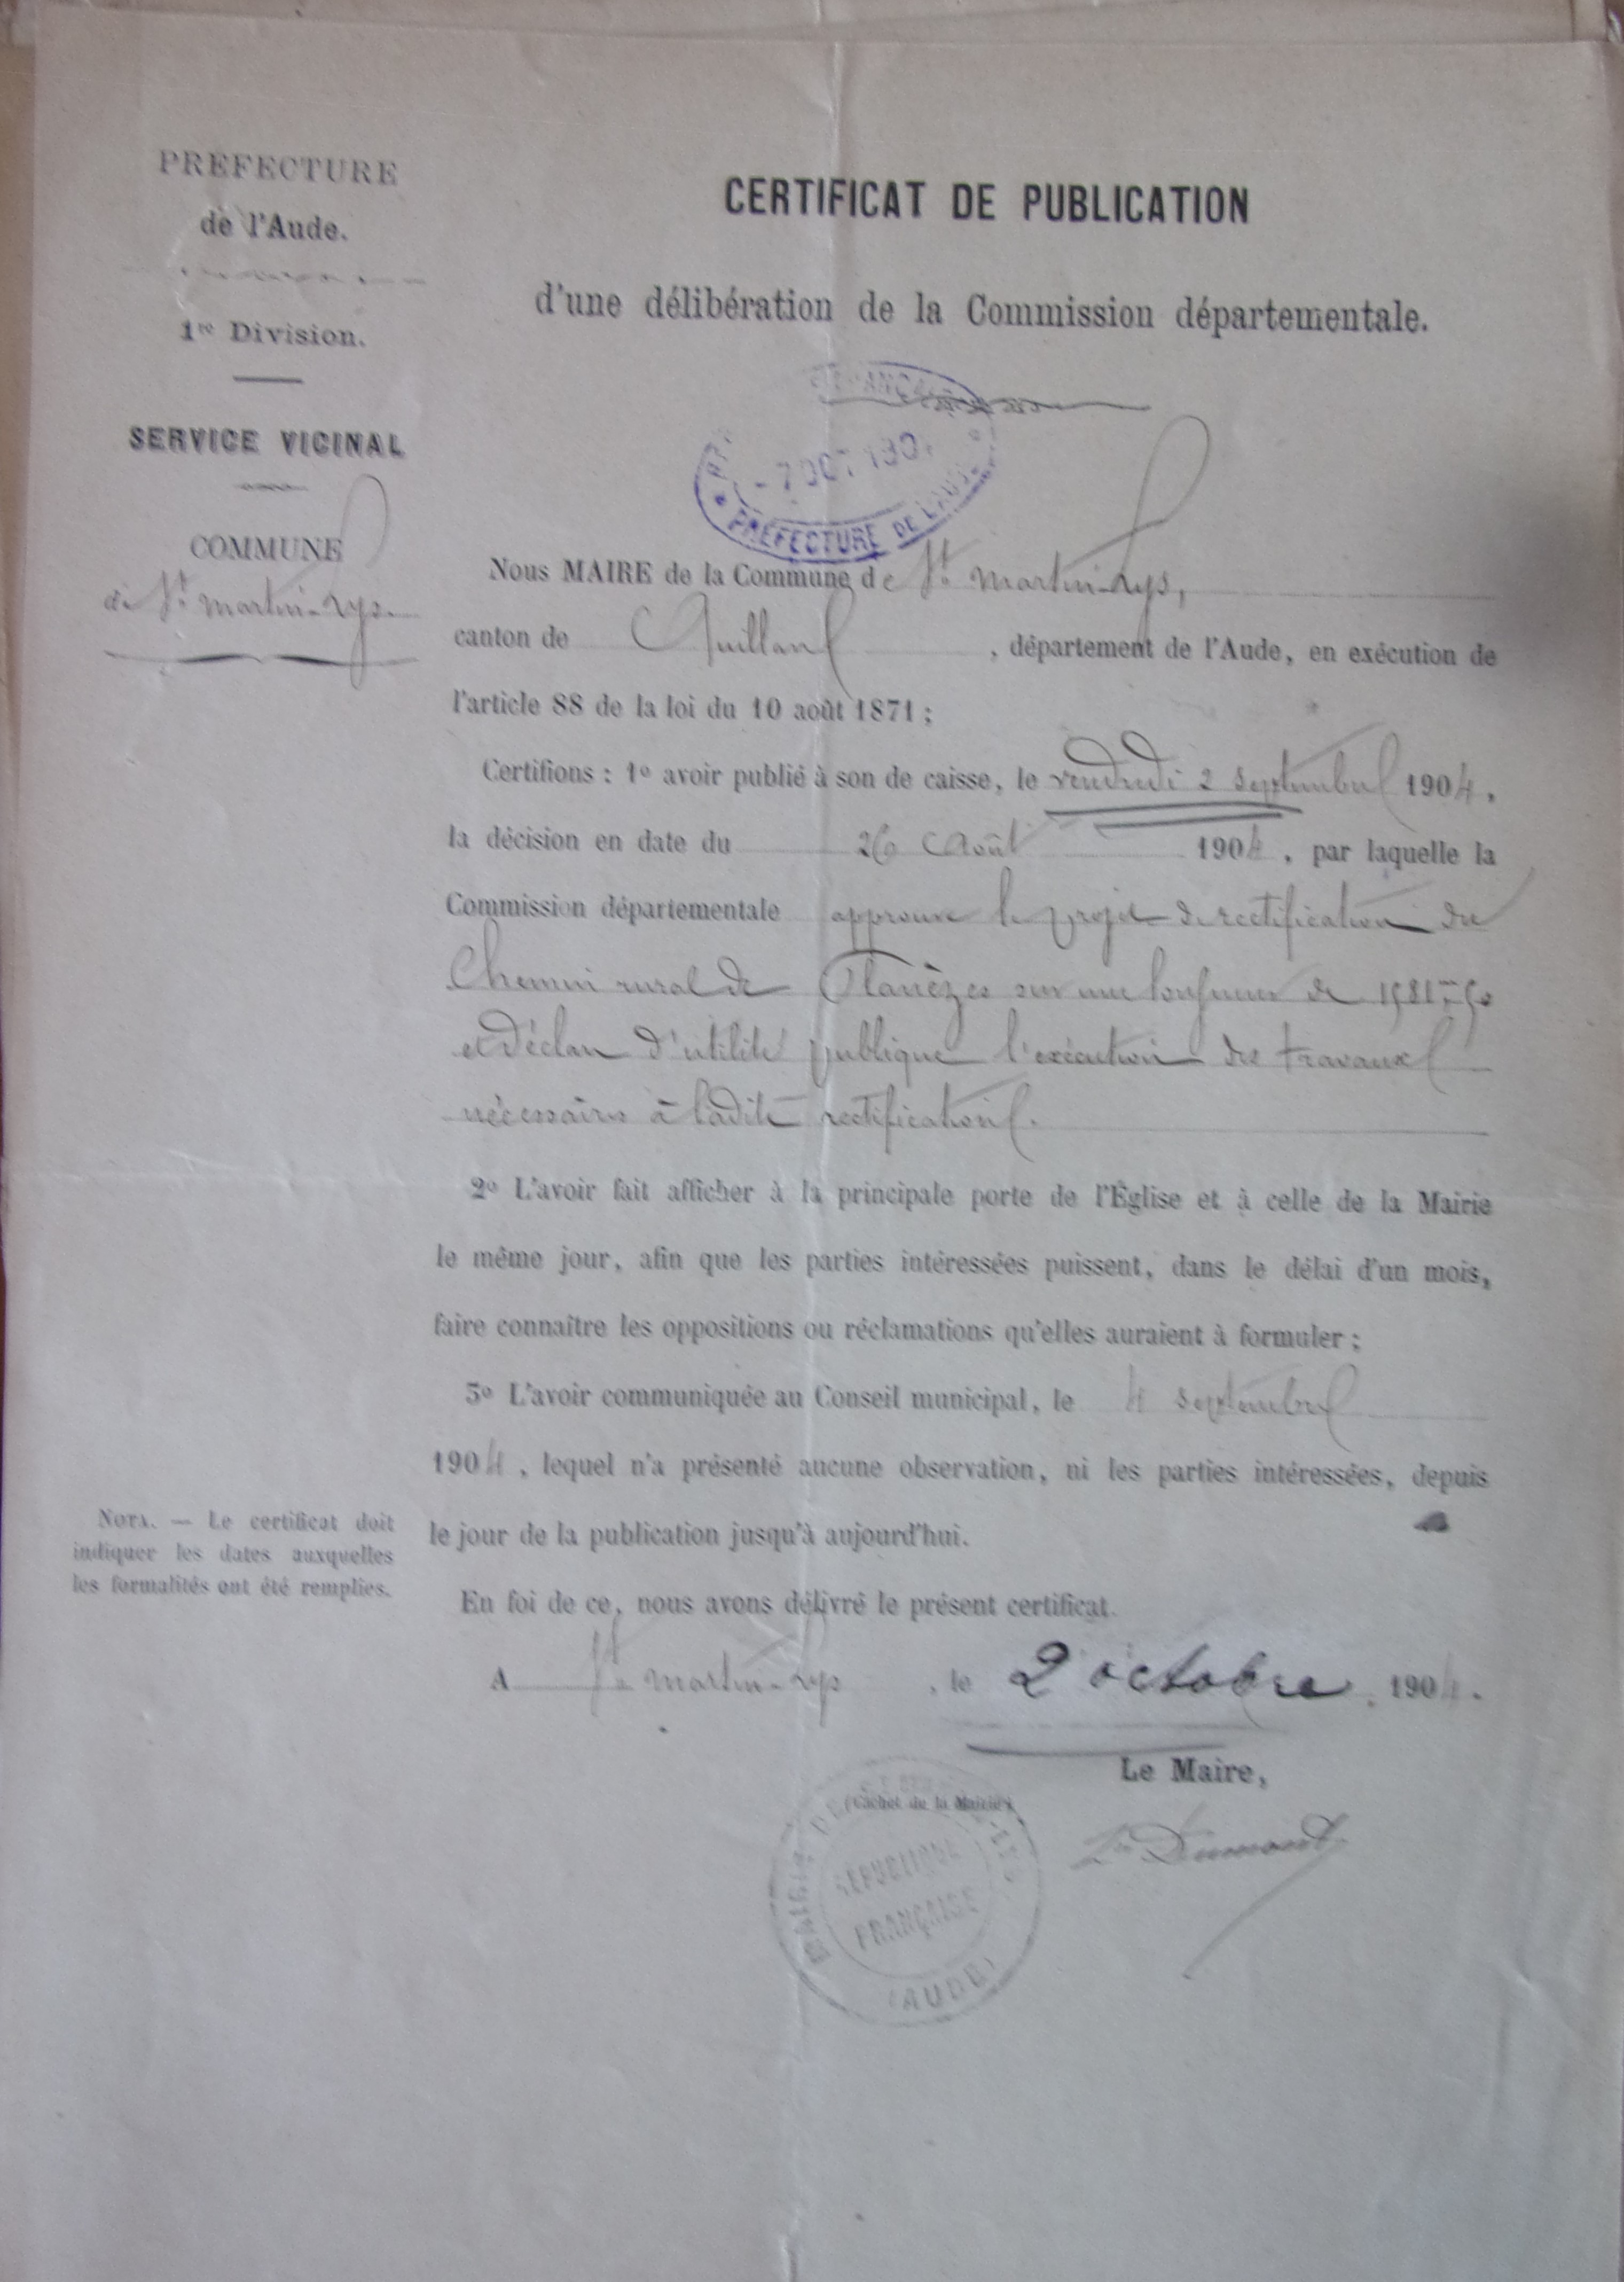 PRÉFECTURE
de l'Aude.
1re Division.
SERVICE VICINAL
COMMUNE
de St. martin-Lys.
CERTIFICAT DE PUBLICATION
d'une délibération de la Commission départementale.
PRÉFECTURE DE L'AUDE
Nous MAIRE de la Commune de St. martin-Lys,
canton de Quillan, département de l'Aude, en exécution de
l'article 88 de la loi du 10 août 1871 ;
Certifions : 1o avoir publié à son de caisse, le vendredi 2 septembre 1904.
la décision en date du 26 Août 1904, par laquelle la
Commission départementale approuve le projet de rectification du
Chemin rural de Planèzes sur une longueur de
et déclare d'utilité publique l'exécution des travaux
nécessaires à ladite rectification.
2o L'avoir fait afficher à la principale porte de l'Église et à celle de la Mairie
le même jour, afin que les parties intéressées puissent, dans le délai d'un mois,
faire connaître les oppositions ou réclamations qu'elles auraient à formuler ;
3o L'avoir communiquée au Conseil municipal, le 4 septembre
1904, lequel n'a présenté aucune observation, ni les parties intéressées, depuis
le jour de la publication jusqu'à aujourd'hui.
NOTA. — Le certificat doit
indiquer les dates auxquelles
les formalités ont été remplies.
En foi de ce, nous avons délivré le présent certificat.
A St. martin-Lys, le 2 octobre 1904.
Le Maire,
(Cachet de la Mairie)
Dumont
RÉPUBLIQUE
FRANÇAISE
(AUDE)